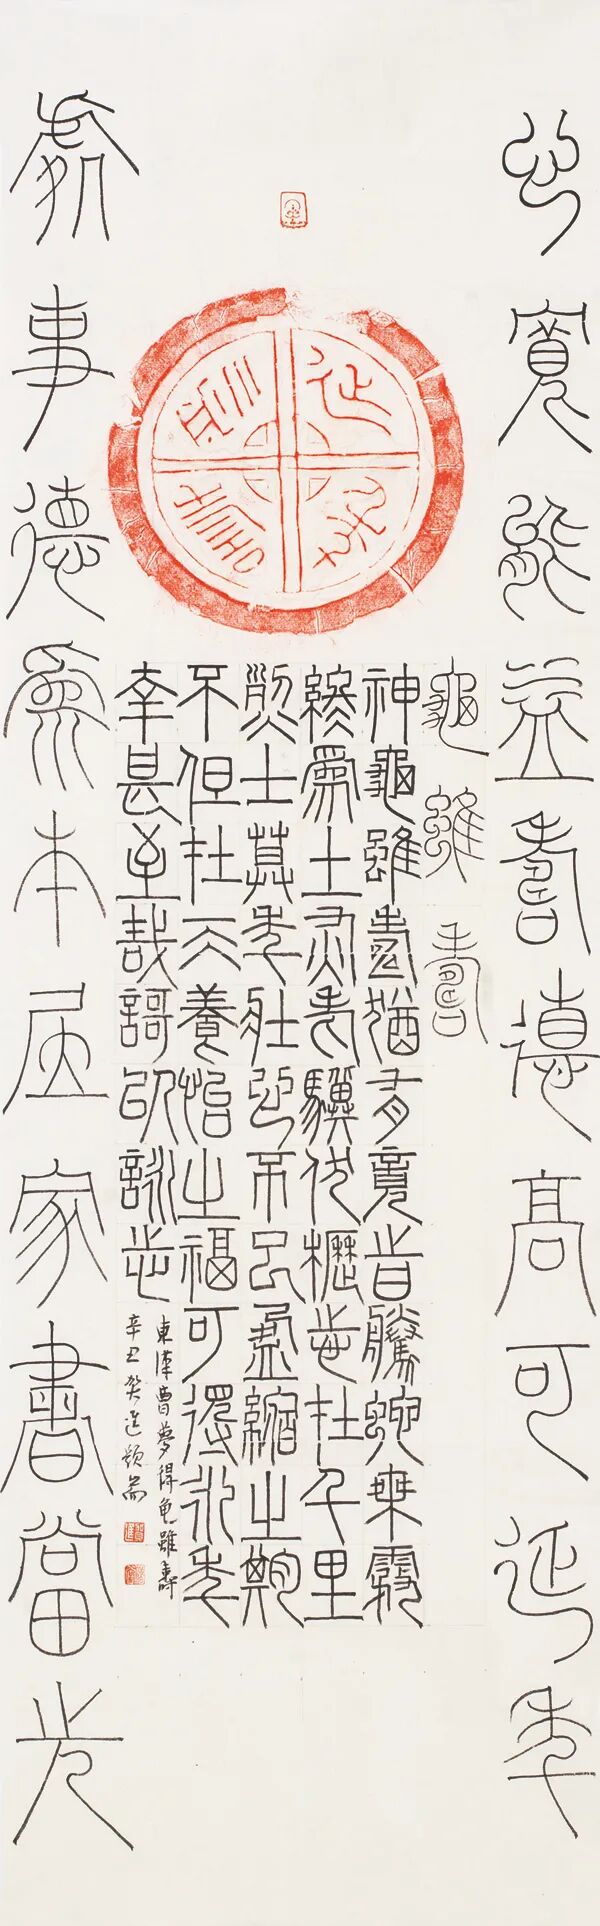 心寬能益壽德高可延年
延年益壽
龜雖壽
神龜雖壽猶有竟時騰蛇乘霧
終爲土灰老驥伏櫪志在千里
烈士暮年壯心不已盈縮之期
不但在天養怡之福可得永年
幸甚至哉歌以詠志
東漢曹夢得龜雖壽
辛丑
處事德爲本居家書當先